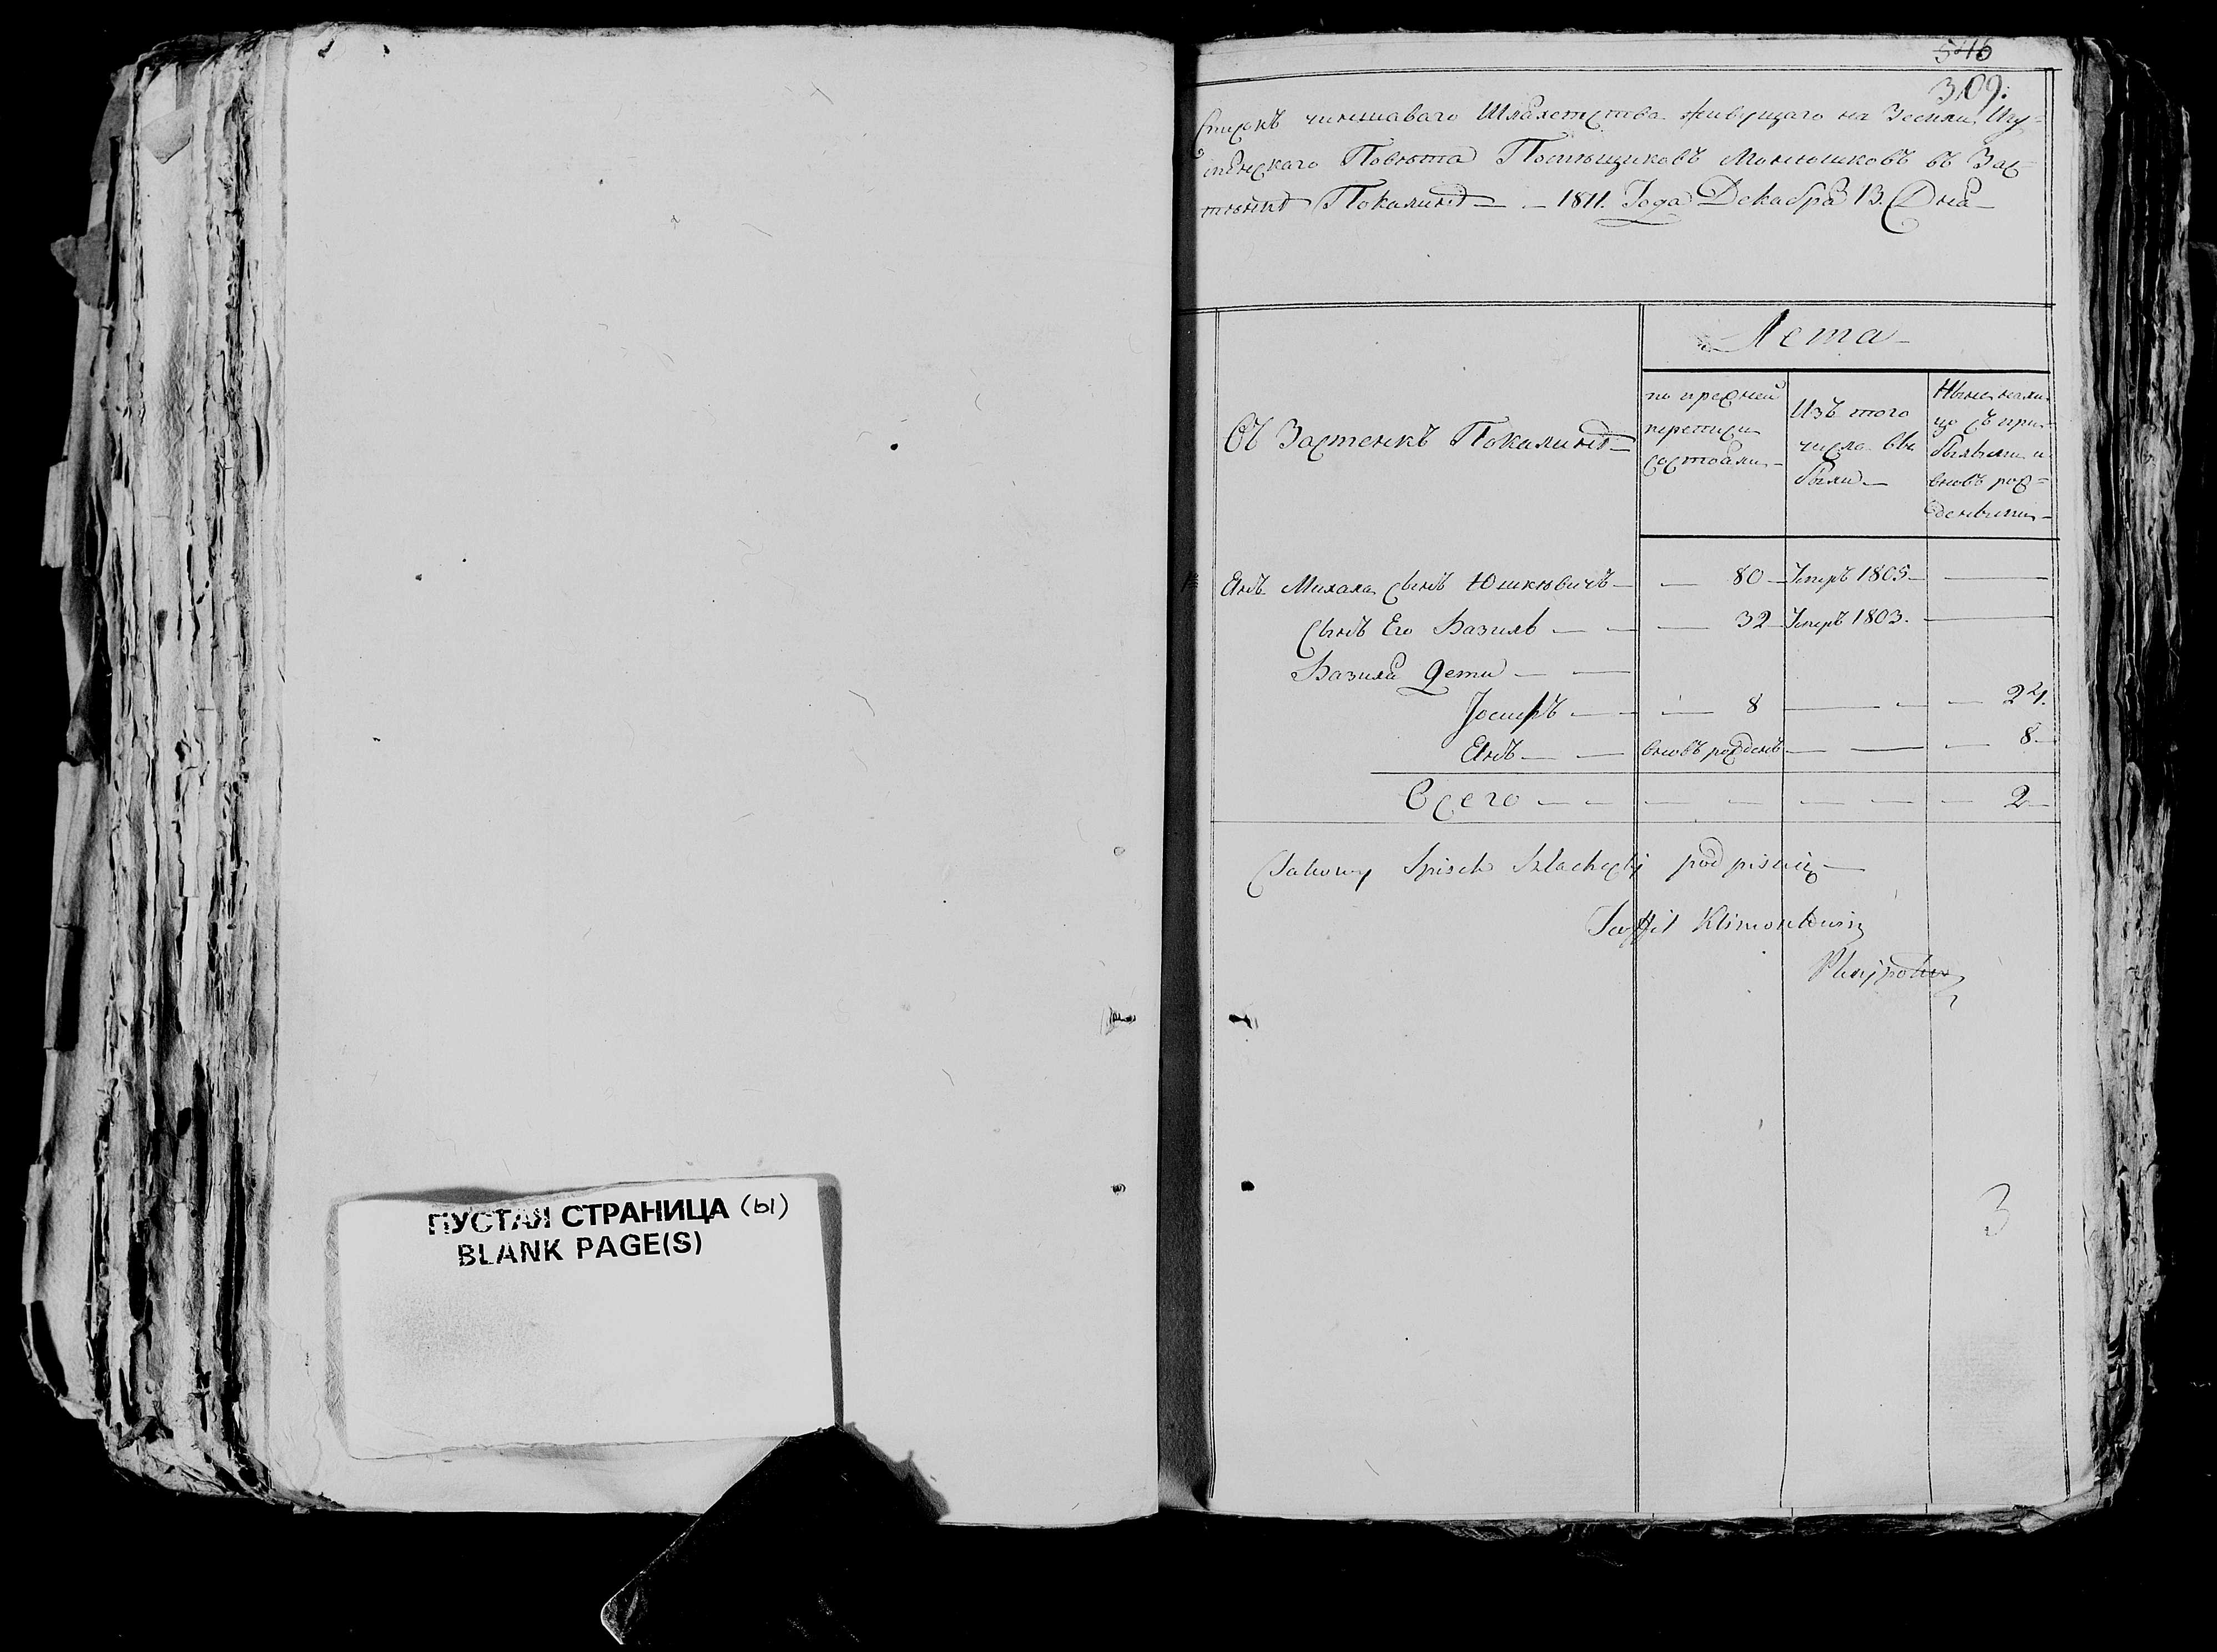 ПУСТАЯ СТРАНИЦА (ы)
BLANK PAGE(S)
546
309:
Списокъ чиншаваго Шляхетства живущаго на Земли Игу=
менскаго Повета Помещиковъ Монюшковъ въ Зас=
тенке Покалине — 1811. Года Декабря 13. Дня
Лета
Въ Застенкъ Покалине
по прежней
переписи
состояли
Изъ того
числа вы
были
Ныне нали
цо съ при
былыми и
вновь рож=
денными
1 Янъ Михала сынъ Юшкевичъ — 80 Умеръ 1805 —
Сынъ Его Базиль — 32 Умеръ 1803. —
Базиля дети
Іосифъ — 8 — 24.
Янъ — вновь рожденъ — 8
Всего — 2
Takowy Spisek Szlachecki podpisuię
Klimontowicz
3